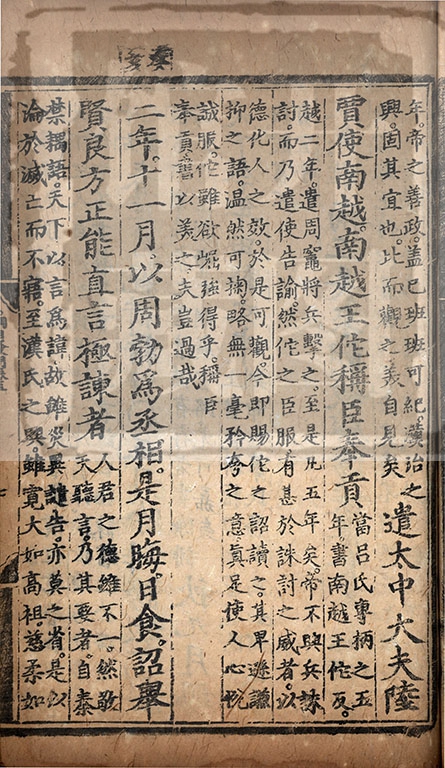 年。帝之善政。蓋已班班可紀。漢治之
興。固其宜也。比而觀之。義自見矣
遣太中大夫陸
賈使南越。南越王佗稱臣奉貢
當呂氏專柄之五
年。書南越王佗反。
越二年。遣周竈將兵擊之。至是凡五年矣。帝不興兵誅
討。而乃遣使告諭。然佗之臣服有甚於誅討之威者。以
德化人之效。於是可觀。今即賜佗之詔讀之。其卑遜謙
抑之語。溫然可掬。略無一毫矜夸之意。眞足使人心悅
誠服。佗雖欲崛強得乎。稱臣
奉貢。書以美之。夫豈過哉
二年。十一月。以周勃爲丞相。是月晦。日食。詔舉
賢良方正能直言極諫者
人君之德雖不一。然敬
天聽言。乃其要者。自秦
禁耦語。天下以言爲諱。故雖災異譴告。亦莫之省。是以
淪於滅亡而不寤。至漢氏之興。雖寬大如高祖。慈柔如